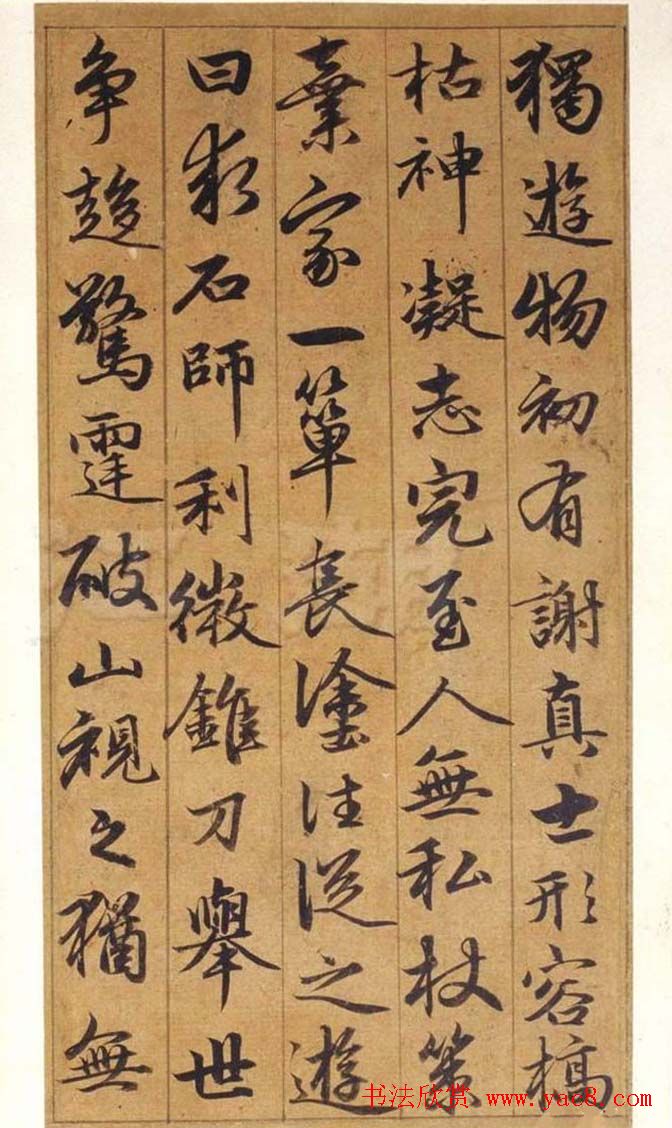 獨遊物初有謝真士形容槁
枯神凝志完至人無私杖策
棄家一簞長塗往從之遊
曰求石師利徵錐刀舉世
爭趍驚霆破山視之猶無
书法欣赏 www.yac8.com